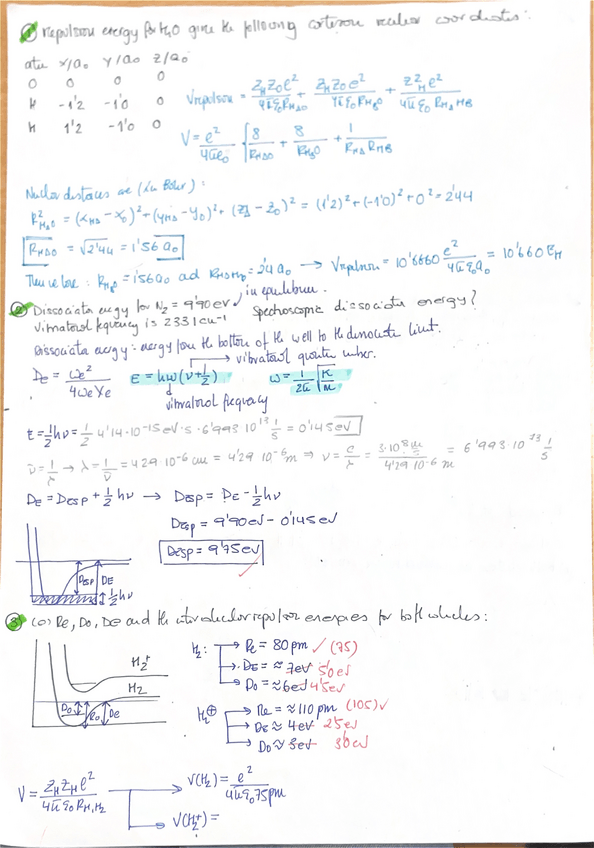 ① Repulsion energy for H₂O give the following cartesian nuclear coordinates:
x/a₀ y/a₀ z/a₀
O 0 0 0
H -1'2 -1'0 0
H 1'2 -1'0 0
Vrepulsion = Z_H Z_O e² / 4πε₀R_HAO + Z_H Z_O e² / 4πε₀R_HBO + Z²_H e² / 4πε₀ R_HA HB
V = e² / 4πε₀ [ 8 / R_HAO + 8 / R_HBO + 1 / R_HA R_HB
Nuclear distances are (in Bohr):
R²_HAO = (x_HA - x_O)² + (y_HA - y_O)² + (z_A - z_O)² = (1'2)² + (-1'0)² + 0² = 2'44
R_HAO = √2'44 = 1'56 a₀
Therefore: R_HBO = 1'56a₀ and R_HAHB = 2'4 a₀ → Vrepulsion = 10'6660 e² / 4πε₀a₀ = 10'660 E_H
② Dissociation energy for N₂ = 9'90 eV in equilibrium. Spectroscopic dissociation energy?
Vibrational frequency is 2331 cm⁻¹
Dissociation energy: energy from the bottom of the well to the dissociate limit.
vibrational quantum number.
D_E = ωe² / 4ωeχe E = hω(v+½) ω = 1/2π √K/m
vibrational frequency
E = ½hν = ½ 4'14·10⁻¹⁵ eV·s · 6'993 10¹³ 1/s = 0'145 eV
ν̄ = 1/λ → λ = 1/ν̄ = 429·10⁻⁶ cm = 4'29 10⁻⁶ m ⇒ ν = c/λ = 3·10⁸ m/s / 4'29 10⁻⁶ m = 6'993·10¹³ 1/s
D_E = D_ESP + ½ hν → D_ESP = D_E - ½hν
D_ESP = 9'90eV - 0'145eV
D_ESP = 9'75eV
D_ESP D_E
½hν
③ (a) Re, Do, DE and the internuclear repulsion energies for both molecules:
H₂⁺
H₂
Do Ro DE
H₂: Re = 80 pm ✓ (75)
DE = ≈ 7eV 5'0eV
Do = ≈ 6eV 4'5eV
H₂⊕ Re = ≈ 110 pm (105)✓
DE ≈ 4eV 2'5eV
Do ≈ 3eV 3'0eV
V = Z_H Z_H e² / 4πε₀ R_H,H₂
V(H₂) = e² / 4πε₀ 75pm
V(H₂⁺) =